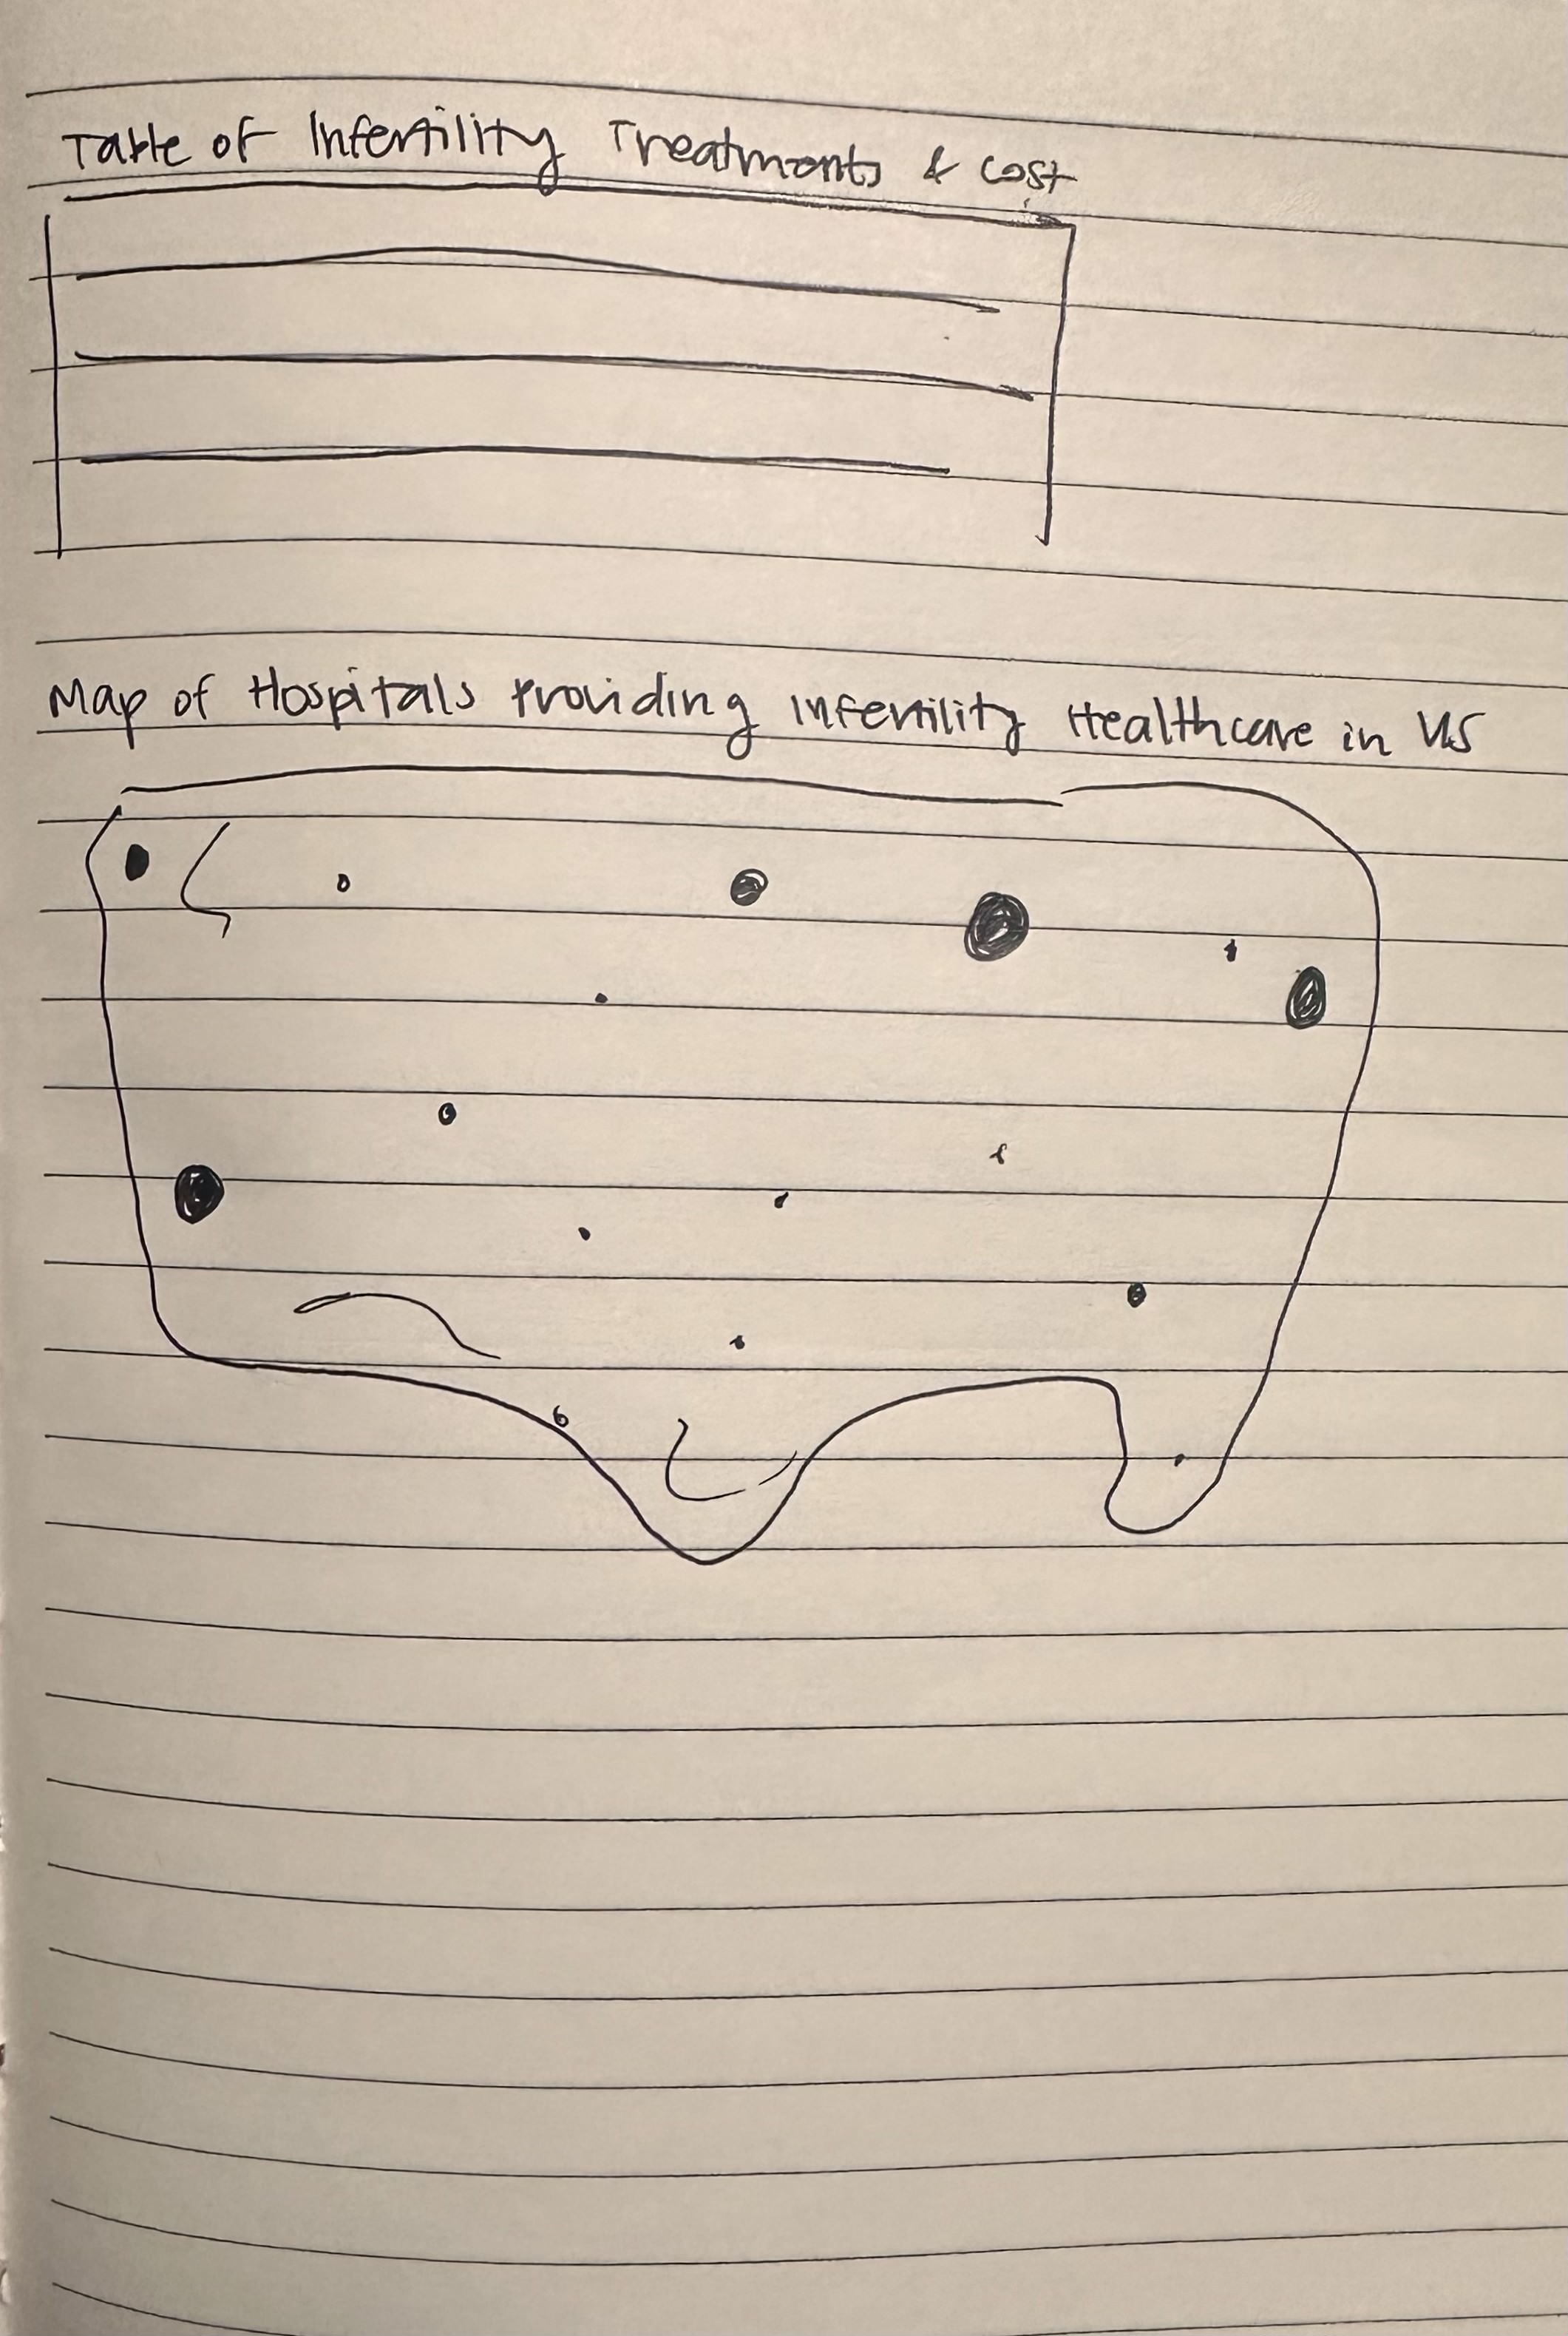 Table of Infertility Treatments & Cost
Map of Hospitals Providing Infertility Healthcare in US